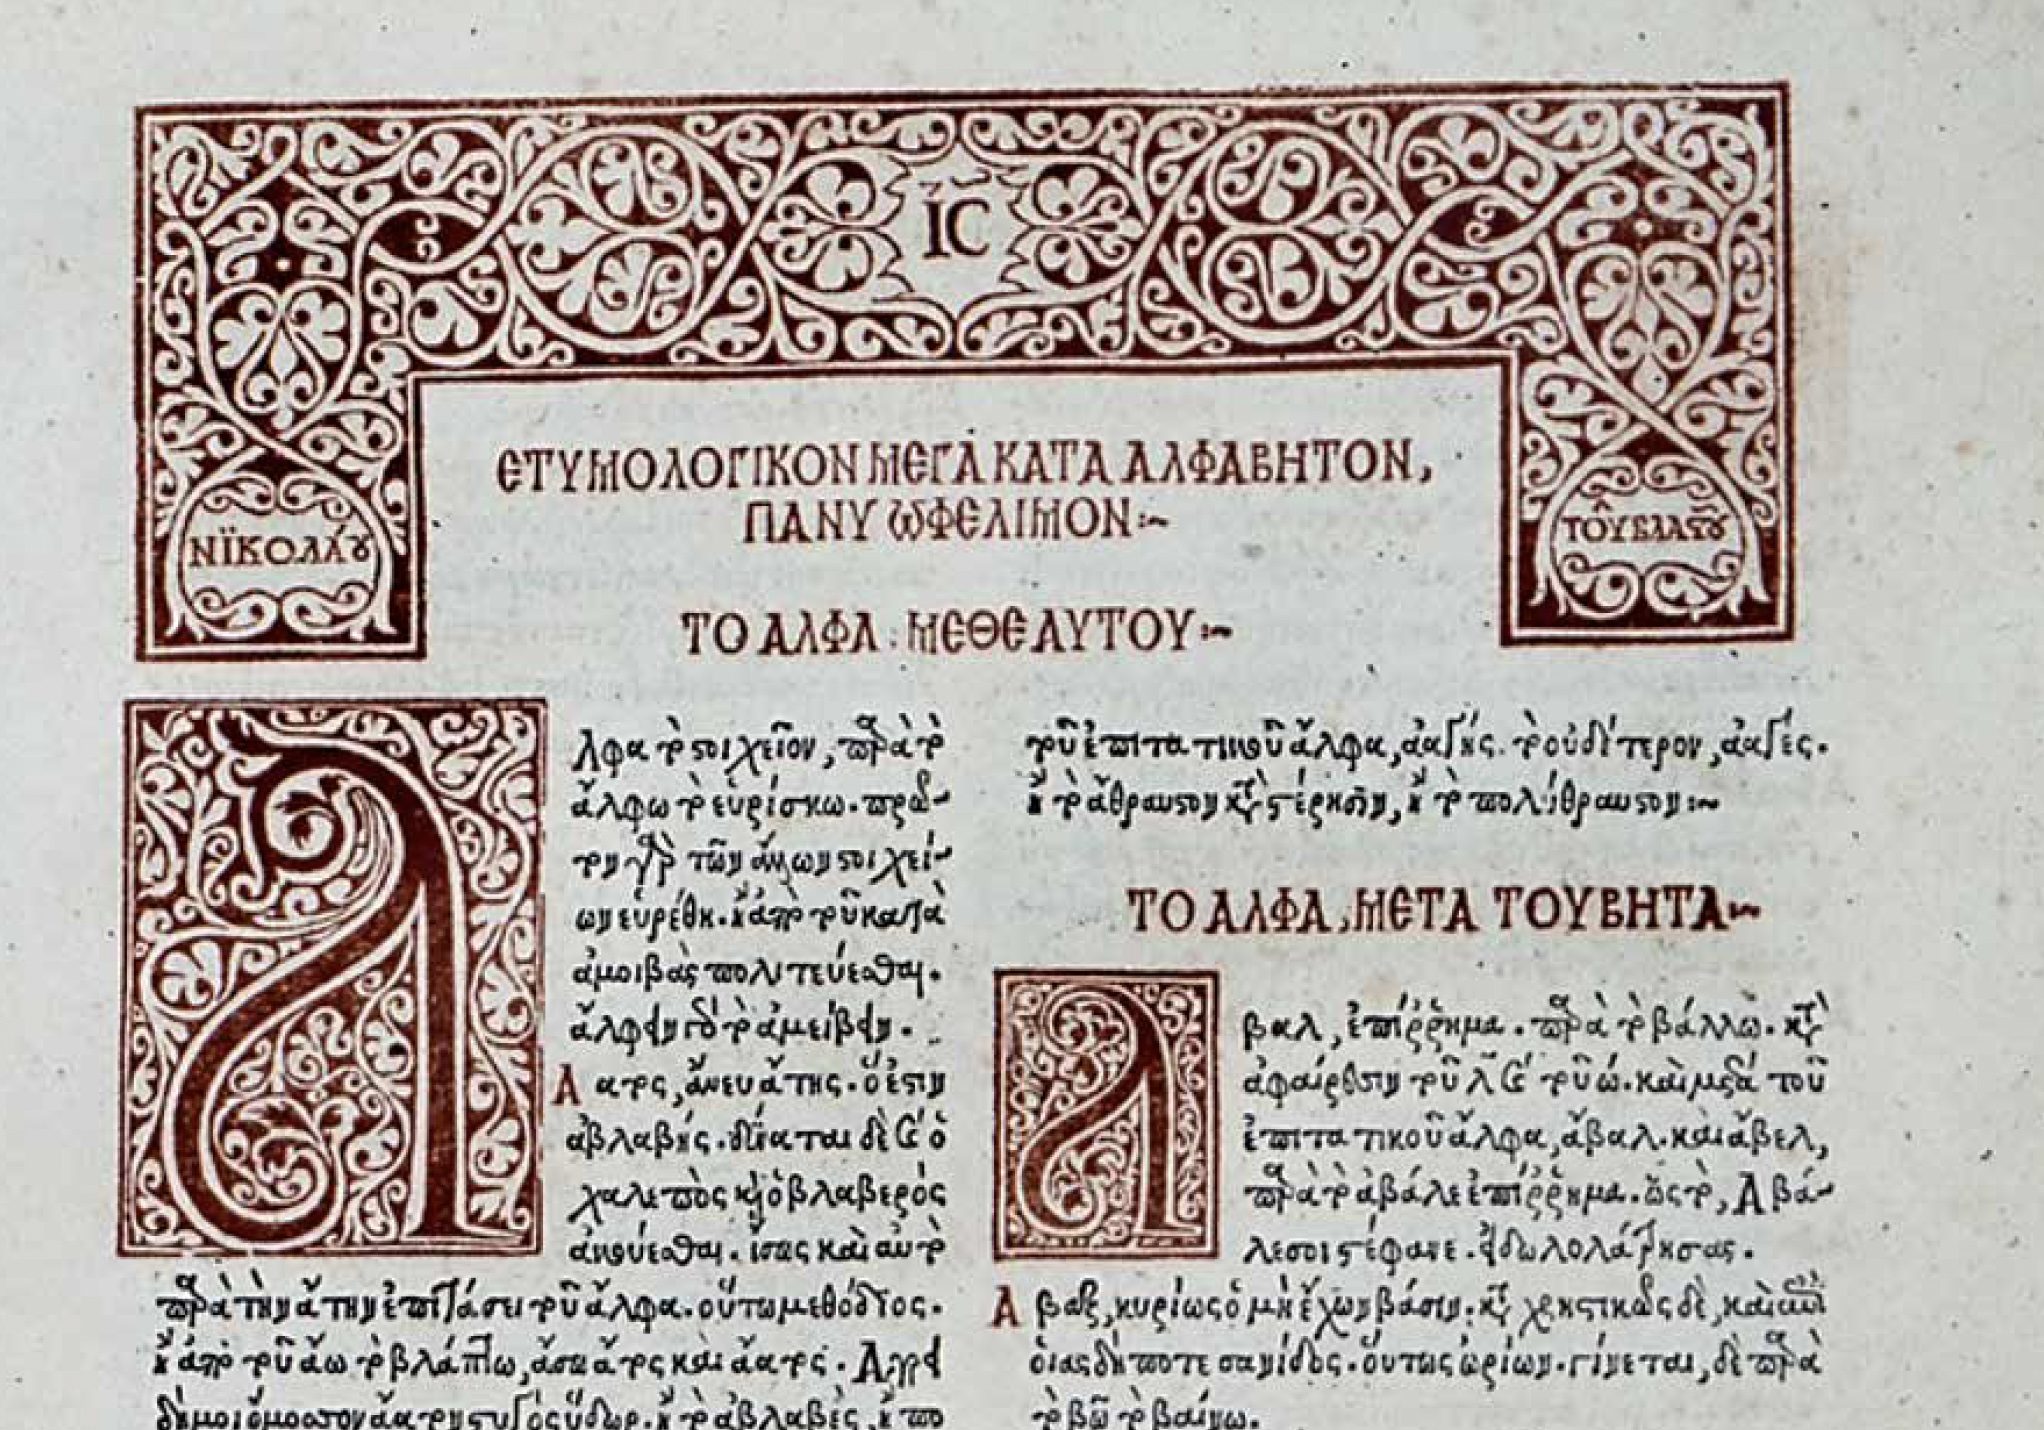 ΙC
ΕΤΥΜΟΛΟΓΙΚΟΝ ΜΕΓΑ ΚΑΤΑ ΑΛΦΑΒΗΤΟΝ,
ΠΑΝΥ ΩΦΕΛΙΜΟΝ:~
ΝΪΚΟΛΆȢ
ΤΟῦ ΒΛΑϚȢ͂
ΤΟ ΑΛΦΑ: ΜΕΘΕΑΥΤΟΥ:~
λφα τὸ ϛοιχεῖον, παρὰ τὸ
ἄλφω τὸ εὑρίσκω. πρῶ-
τον γὰρ τῶν ἄλλων ϛοιχεί-
ων εὑρέθη. ἢ ἀπὸ τοῦ κατὰ
ἀμοιβὰς πολιτεύεσθαι.
ἄλφειν γὰρ τὸ ἀμείβειν.
Α ατος, ἄνευ ἄτης. ὅ ἐϛιν
ἀβλαβής. δύναται δὲ καὶ ὁ
χαλεπὸς καὶ ὁ βλαβερὸς
ἀκούεσθαι. ἴσως καὶ αὐτὸ
παρὰ τὴν ἄτην ἐπιτάσει τοῦ ἄλφα. οὕτω μεθόδιος.
ἢ ἀπὸ τοῦ ἄω τὸ βλάπτω, ἄσω ἄτος καὶ ἄατος.
τοῦ ἐπιτατικοῦ ἄλφα, ἀαγής. τὸ οὐδέτερον, ἀαγές.
ἢ τὸ ἄθραυϛον κατὰ ϛέρησιν, ἢ τὸ πολύθραυϛον:~
ΤΟ ΑΛΦΑ, ΜΕΤΑ ΤΟΥ ΒΗΤΑ:~
βαλ, ἐπίῤῥημα. παρὰ τὸ βάλλω. κατὰ
ἀφαίρεσιν τοῦ λ καὶ τοῦ ω. καὶ μετὰ τοῦ
ἐπιτατικοῦ ἄλφα, ἄβαλ. καὶ ἄβελ,
παρὰ τὸ ἀβάλε ἐπίῤῥημα. ὡς τὸ, Ἀβά-
λε σοι ϛέφανε. εἰδωλολάτρησας.
Α βαξ, κυρίως ὁ μὴ ἔχων βάσιν. καταχρηϛικῶς δὲ, καὶ ἐπὶ
οἵας δήποτε σανίδος. οὕτως ὠρίων. γίνεται, δὲ παρὰ
τὸ βῶ τὸ βαίνω.